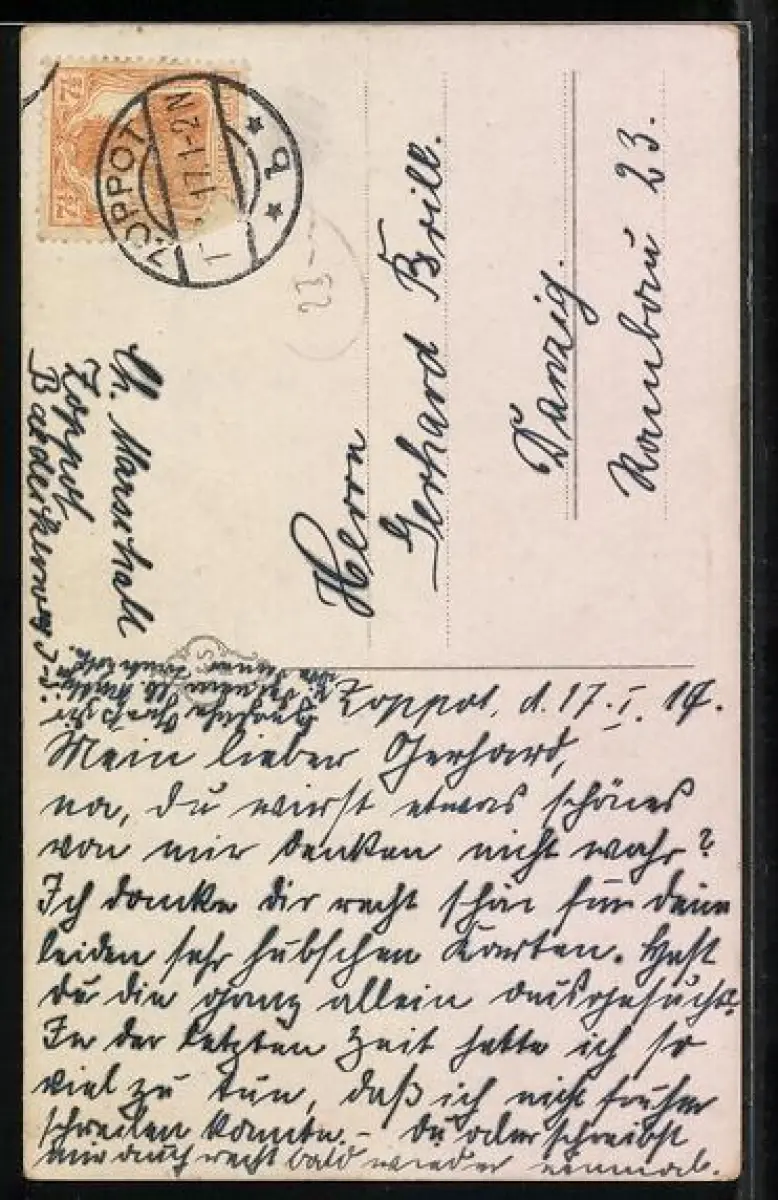 7½
7½
ZOPPOT
17. 1-2N
* b *
23
Herrn
Gerhard Brill.
Danzig.
Rambau 23.
Ch. Marschall
Zoppot
Zoppot, d. 17. I. 17.
Mein lieber Gerhard,
na, du wirst etwas schönes
von mir denken nicht wahr?
Ich danke dir recht schön für deine
beiden sehr hübschen Karten. Hast
du die ganz allein ausgesucht?
In der letzten Zeit hatte ich so
viel zu tun, daß ich nicht früher
schreiben konnte. – Du aber schreibst
mir auch recht bald wieder einmal.